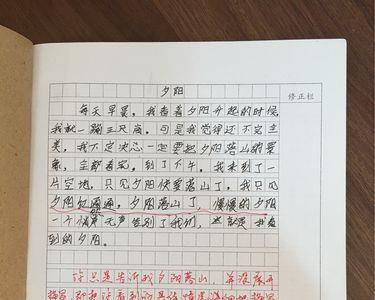 夕阳
修正栏
每天早晨，我看着夕阳升起的时候
我就一蹦三尺高，可是我觉得还不完主
美，我下定决心一定要把夕阳落山的景
象，全都看完，到了下午，我来到了一
片空地，只见夕阳快要落山了，我只见
夕阳红通通，夕阳落山了，慢慢的夕阳
一个悄声无声告别了我们，这就是我看
到的夕阳。
你只是告诉我夕阳落山，并没展开